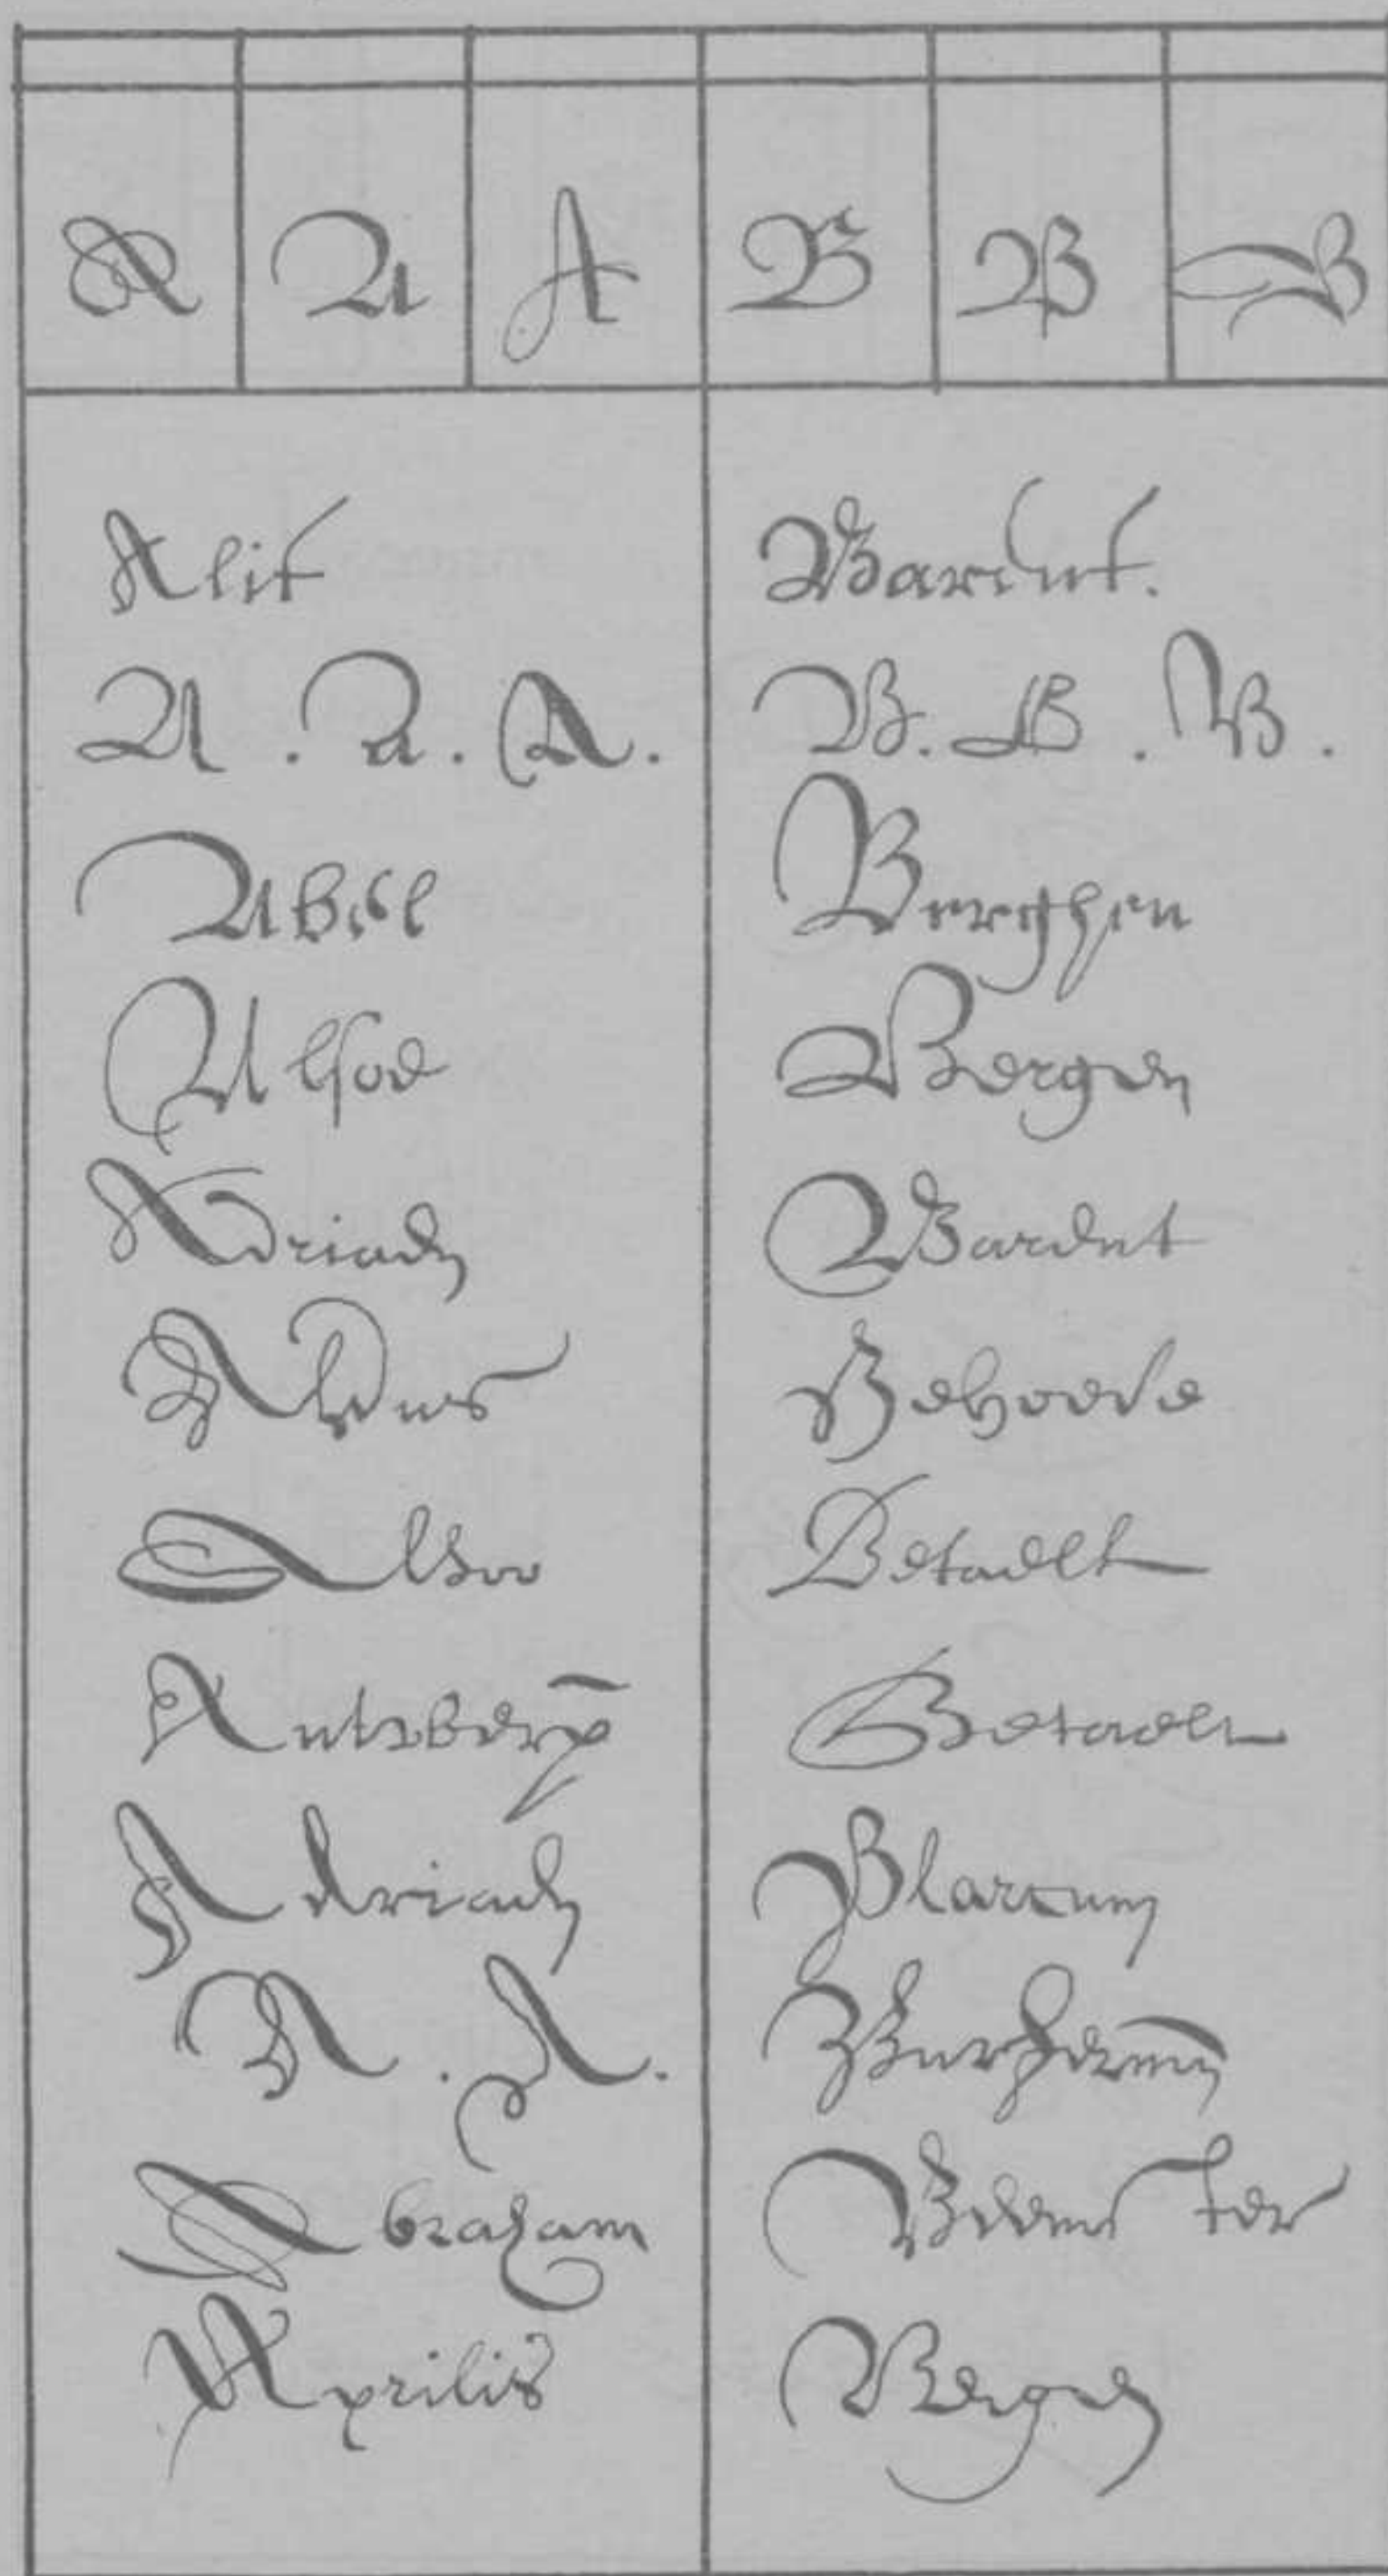 A A A B B B
Alit
A. A. A.
Abel
Alsoe
Adriaen
Alsoo
Antwerp
Adriaen
A. A.
Abraham
Aprilis
Barent.
B. B. B.
Berghen
Bergen
Barent
Behoede
Betaelt
Betaelt
Blarcum
Beens ter
Bergen